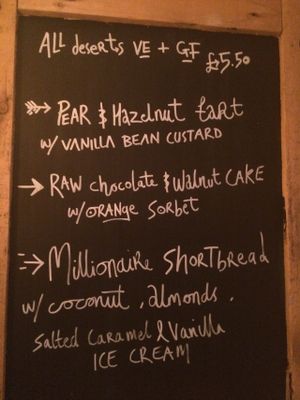 ALL deserts VE + GF
£5.50
PEAR & Hazelnut tart
w/ VANILLA BEAN CUSTARD
RAW chocolate & Walnut CAKE
w/ ORANGE SORBET
Millionaire Shortbread
w/ coconut, almonds,
Salted Caramel & Vanilla
ICE CREAM